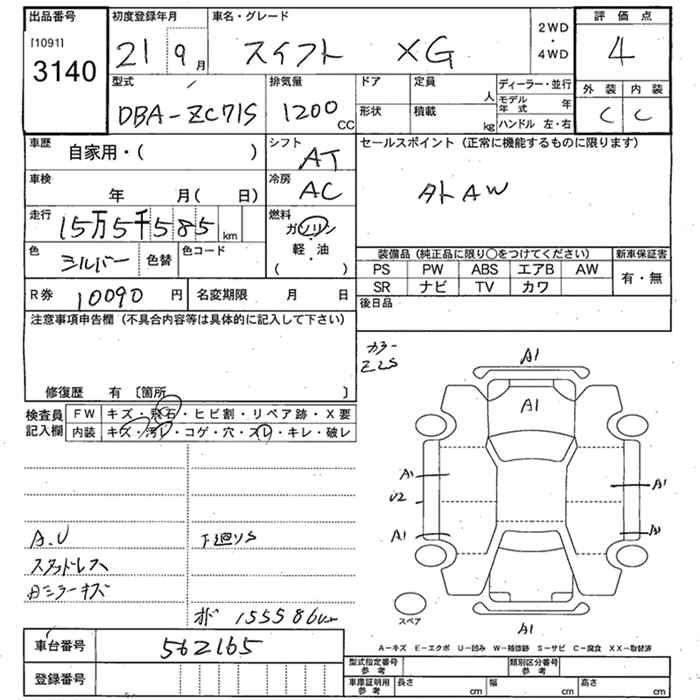 出品番号 初度登録年月 車名・グレード 評価点
[1091] 3140 21 9月 スイフト XG 2WD・4WD 4
型式 排気量 ドア 定員 人 ディーラー・並行 外装 内装
DBA-ZC71S 1200 CC 形状 積載 kg モデル年式 年 ハンドル 左・右 C C
車歴 自家用・( ) シフト AT セールスポイント (正常に機能するものに限ります)
車検 年 月(日) 冷房 AC
走行 15万5千585km 燃料 ガソリン・軽・油 ( )
色 シルバー 色替 色コード 装備品 (純正品に限り○をつけてください) 新車保証書
PS PW ABS エアB AW 有・無
SR ナビ TV カワ
R券 10090円 名変期限 月 日 後日品
注意事項申告欄 (不具合内容等は具体的に記入して下さい)
カラー
Z2S
修復歴 有 〔箇所 〕
検査員記入欄 FW キズ・飛石・ヒビ割・リペア跡・X要
内装 キズ・汚レ・コゲ・穴・スレ・キレ・破レ
A1
A1
A1 A1
U2
A1 A1
A.U 下廻りS
スタッドレス
スペア
A1
A－キズ E－エクボ U－凹み W－補修跡 S－サビ C－腐食 XX－取替済
車台番号 562165
登録番号
型式指定番号 参考 類別区分番号 参考
車庫証明用 参考 長さ cm 幅 cm 高さ cm